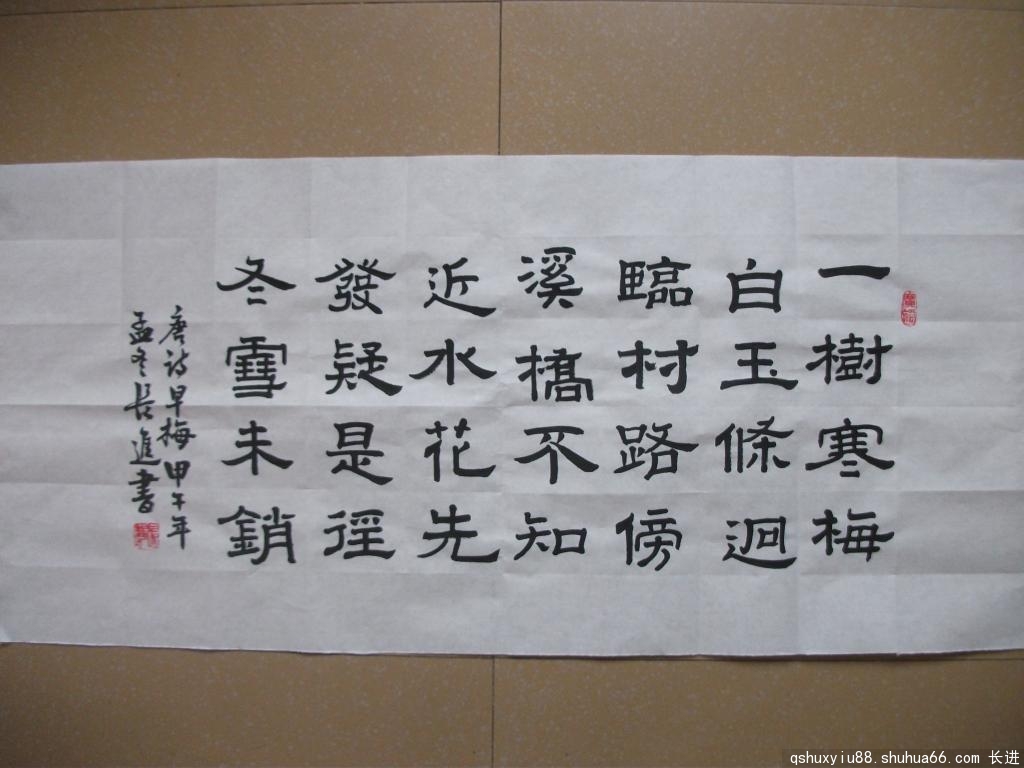 一樹寒梅
白玉條迥
臨村路傍
溪橋不知
近水花先
發疑是徑
冬雪未銷
唐诗早梅甲午年
孟冬长進書
qshuxyiu88.shuhua66.com 长进